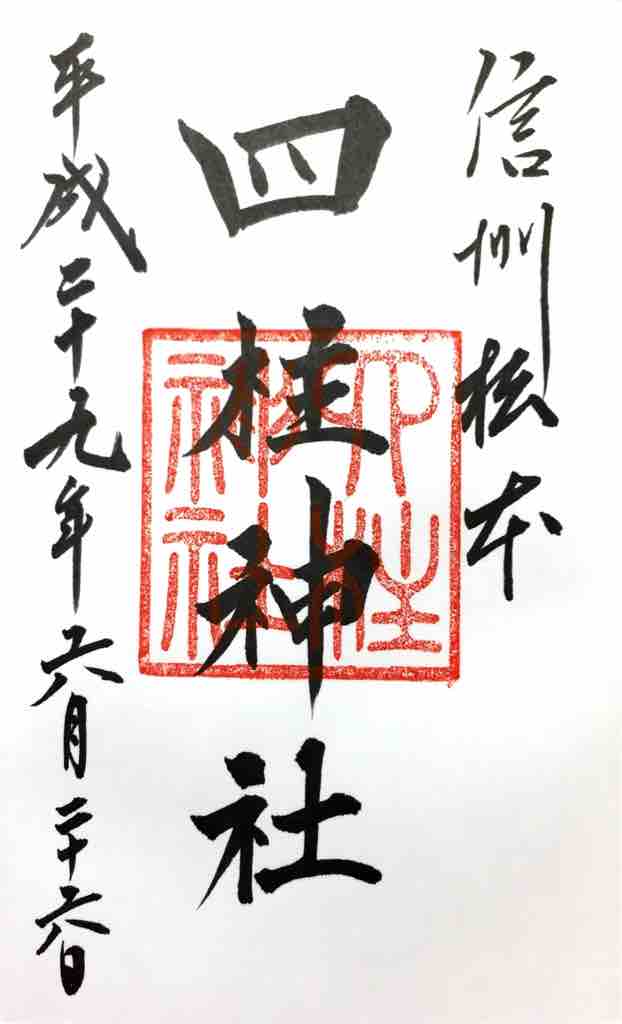 信州松本
四柱神社
四柱神社
平成二十九年六月二十六日